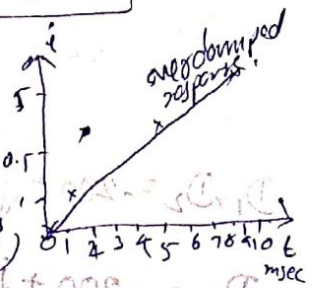 i
overdamped
response.
5
0.5
1
0 1 2 3 4 5 6 7 8 9 10 t
msec